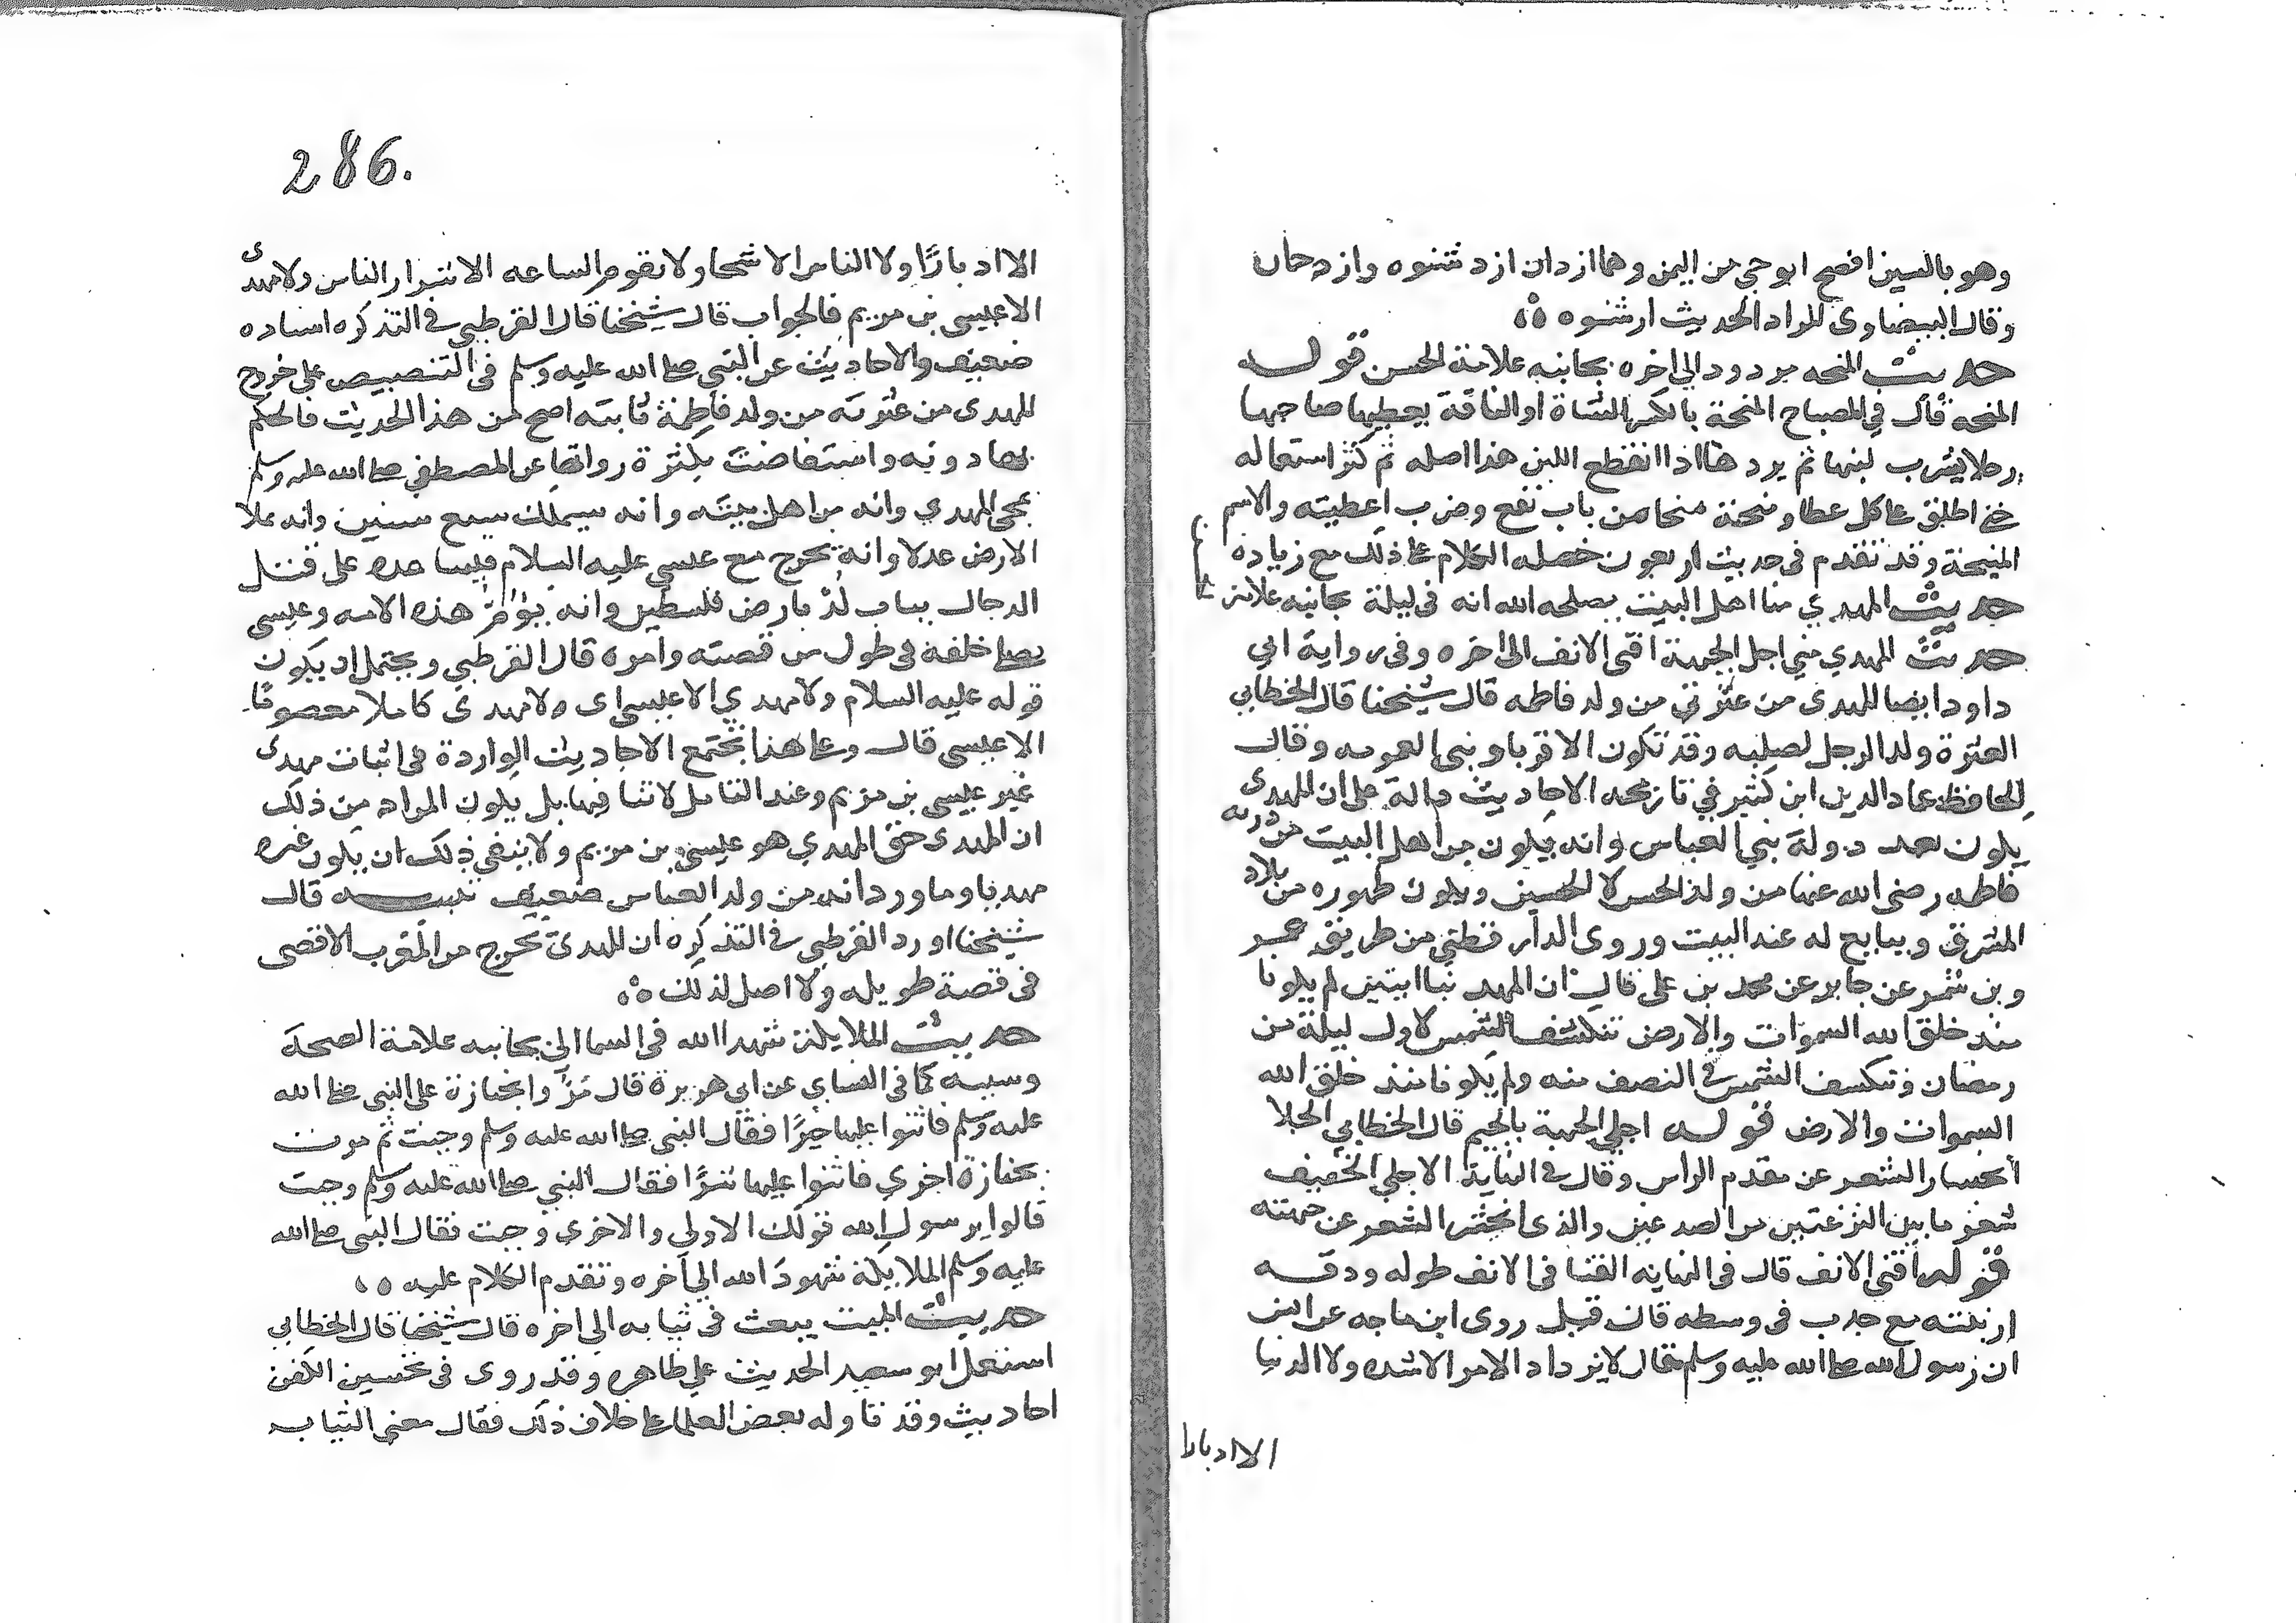 وهو بالسين افصح ابو حي من اليمن وهما ازدان ازد شنوه وازد عمان
وقال البيضاوي المراد الحديث ازد شنوه
حديث المنحه مردود الى اخره بجانبه علامة الحسن قوله
المنحه قال في المصباح المنحة بالكسر الشاة او الناقة يعطيها صاحبها
رجلا يشرب لبنها ثم يردها اذا انقطع اللبن هذا اصله ثم كثر استعماله
حتى اطلق على كل عطا ومنحته منحا من باب نفع وضرب اعطيته والاسم
المنيحة وقد تقدم في حديث اربعون خصله الكلام على ذلك مع زيادة
حديث المهدي منا اهل البيت يصلحه الله انه في ليلة بجانبه علامة
حديث المهدي مني اجل الجبهة اقنى الانف الى اخره وفى رواية ابي
داود ايضا المهدى من عترتي من ولد فاطمه قال شيخنا قال الخطابي
العترة ولد الرجل لصلبه وقد تكون الاقربا وبنى العمومه وقال
الحافظ عماد الدين ابن كثير في تاريخه الاحاديث دالة على ان المهدى
يكون بعد دولة بني العباس وانه يكون من اهل البيت من ذريه
فاطمه رضى الله عنها من ولد الحسن لا الحسين ويكون ظهوره من بلاد
المشرق ويبايع له عند البيت وروى الدارقطني من طريق عمر
وبن شمر عن جابر عن محمد بن على قال ان لمهدينا ايتين لم يكونا
منذ خلق الله السموات والارض تنكسف الشمس لاول ليلة من
رمضان وتنكسف الشمس في النصف منه ولم يكونا منذ خلق الله
السموات والارض قوله اجلي الجبهة بالجيم قال الخطابي الجلا
انحسار الشعر عن مقدم الراس وقال في النهاية الاجلي الخفيف
شعر ما بين النزعتين من الصدغين والذى انحسر الشعر عن جبهته
قوله اقنى الانف قال فى النهايه القنا فى الانف طوله ودقه
ارنبته مع حدب فى وسطه فان قيل روى ابن ماجه عن انس
ان رسول الله صلى الله عليه وسلم قال لا يزداد الامر الا شده ولا الدنيا
الا ادبارا
286.
الا ادبارًا ولا الناس الا شحا ولا تقوم الساعه الا على شرار الناس ولا مهدى
الا عيسى بن مريم فالجواب قال شيخنا قال القرطبي في التذكره اسناده
ضعيف والاحاديث عن النبي صلى الله عليه وسلم فى التنصيص على خروج
المهدى من عترته من ولد فاطمة ثابته اصح من هذا الحديث فالحكم
بها دونه واستفاضت بكثرة رواتها عن المصطفي صلى الله عليه وسلم
بمجى المهدي وانه من اهل بيته وانه سيملك سبع سنين وانه يملا
الارض عدلا وانه يخرج مع عيسى عليه السلام فيساعده على قتل
الدجال بباب لُدّ بارض فلسطين وانه يؤمّ هذه الامه وعيسى
يصلى خلفه في طول من قصته وامره قال القرطبي ويحتمل ان يكون
قوله عليه السلام ولا مهدي الا عيسى اى ولا مهدى كاملا معصومًا
الا عيسى قال وعلى هذا تجتمع الاحاديث الواردة فى اثبات مهدى
غير عيسى بن مريم وعند التامل لا تنافيها بل يكون المراد من ذلك
ان المهدى حق المهدي هو عيسى بن مريم ولا ينفي ذلك ان يكون غيره
مهديا وما ورد انه من ولد العباس ضعيف تنبيه قال
شيخنا اورد القرطبي في التذكره ان المهدى يخرج من المغرب الاقصى
فى قصة طويله ولا اصل لذلك
حديث الملايكة شهدا الله فى السما الى بجانبه علامة الصحة
وسببه كما فى النساي عن ابى هريرة قال مرّوا بجنازة على النبي صلى الله
عليه وسلم فاثنوا عليها خيرًا فقال النبى صلى الله عليه وسلم وجبت ثم مرت
بجنازة اخري فاثنوا عليها شرًا فقال النبي صلى الله عليه وسلم وجبت
قالوا يرسول الله قولك الاولى والاخري وجبت فقال النبى صلى الله
عليه وسلم الملايكة شهود الله الي آخره وتقدم الكلام عليه
حديث الميت يبعث فى ثيابه الى اخره قال شيخنا قال الخطابي
استعمل ابو سعيد الحديث علي ظاهره وقد روى فى تحسين الكفن
احاديث وقد تاوله بعض العلما على خلاف ذلك فقال معنى الثياب